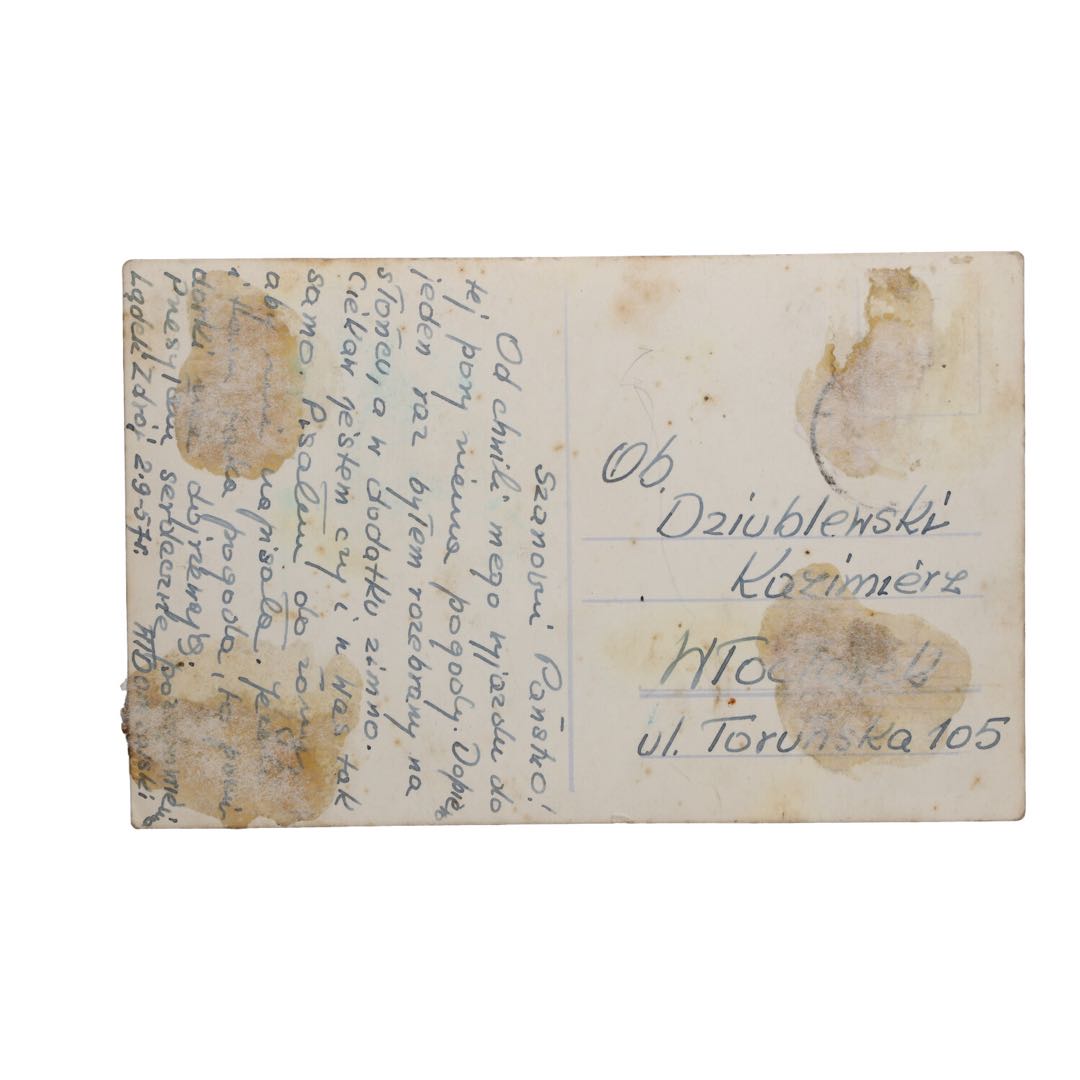 Szanowni Państwo!
Od chwili mego wyjazdu do
tej pory niema pogody. Dopiero
jeden raz byłem rozebrany na
słońcu, a w dodatku zimno.
Ciekaw jestem czy i u Was tak
samo. Pisałem do żony
aby mi napisała.
i pogoda, to
Przesyłam serdeczne
Lądek Zdrój 2.9-57r.
Ob.
Dziublewski
Kazimiérz
Włocławek
ul. Toruńska 105